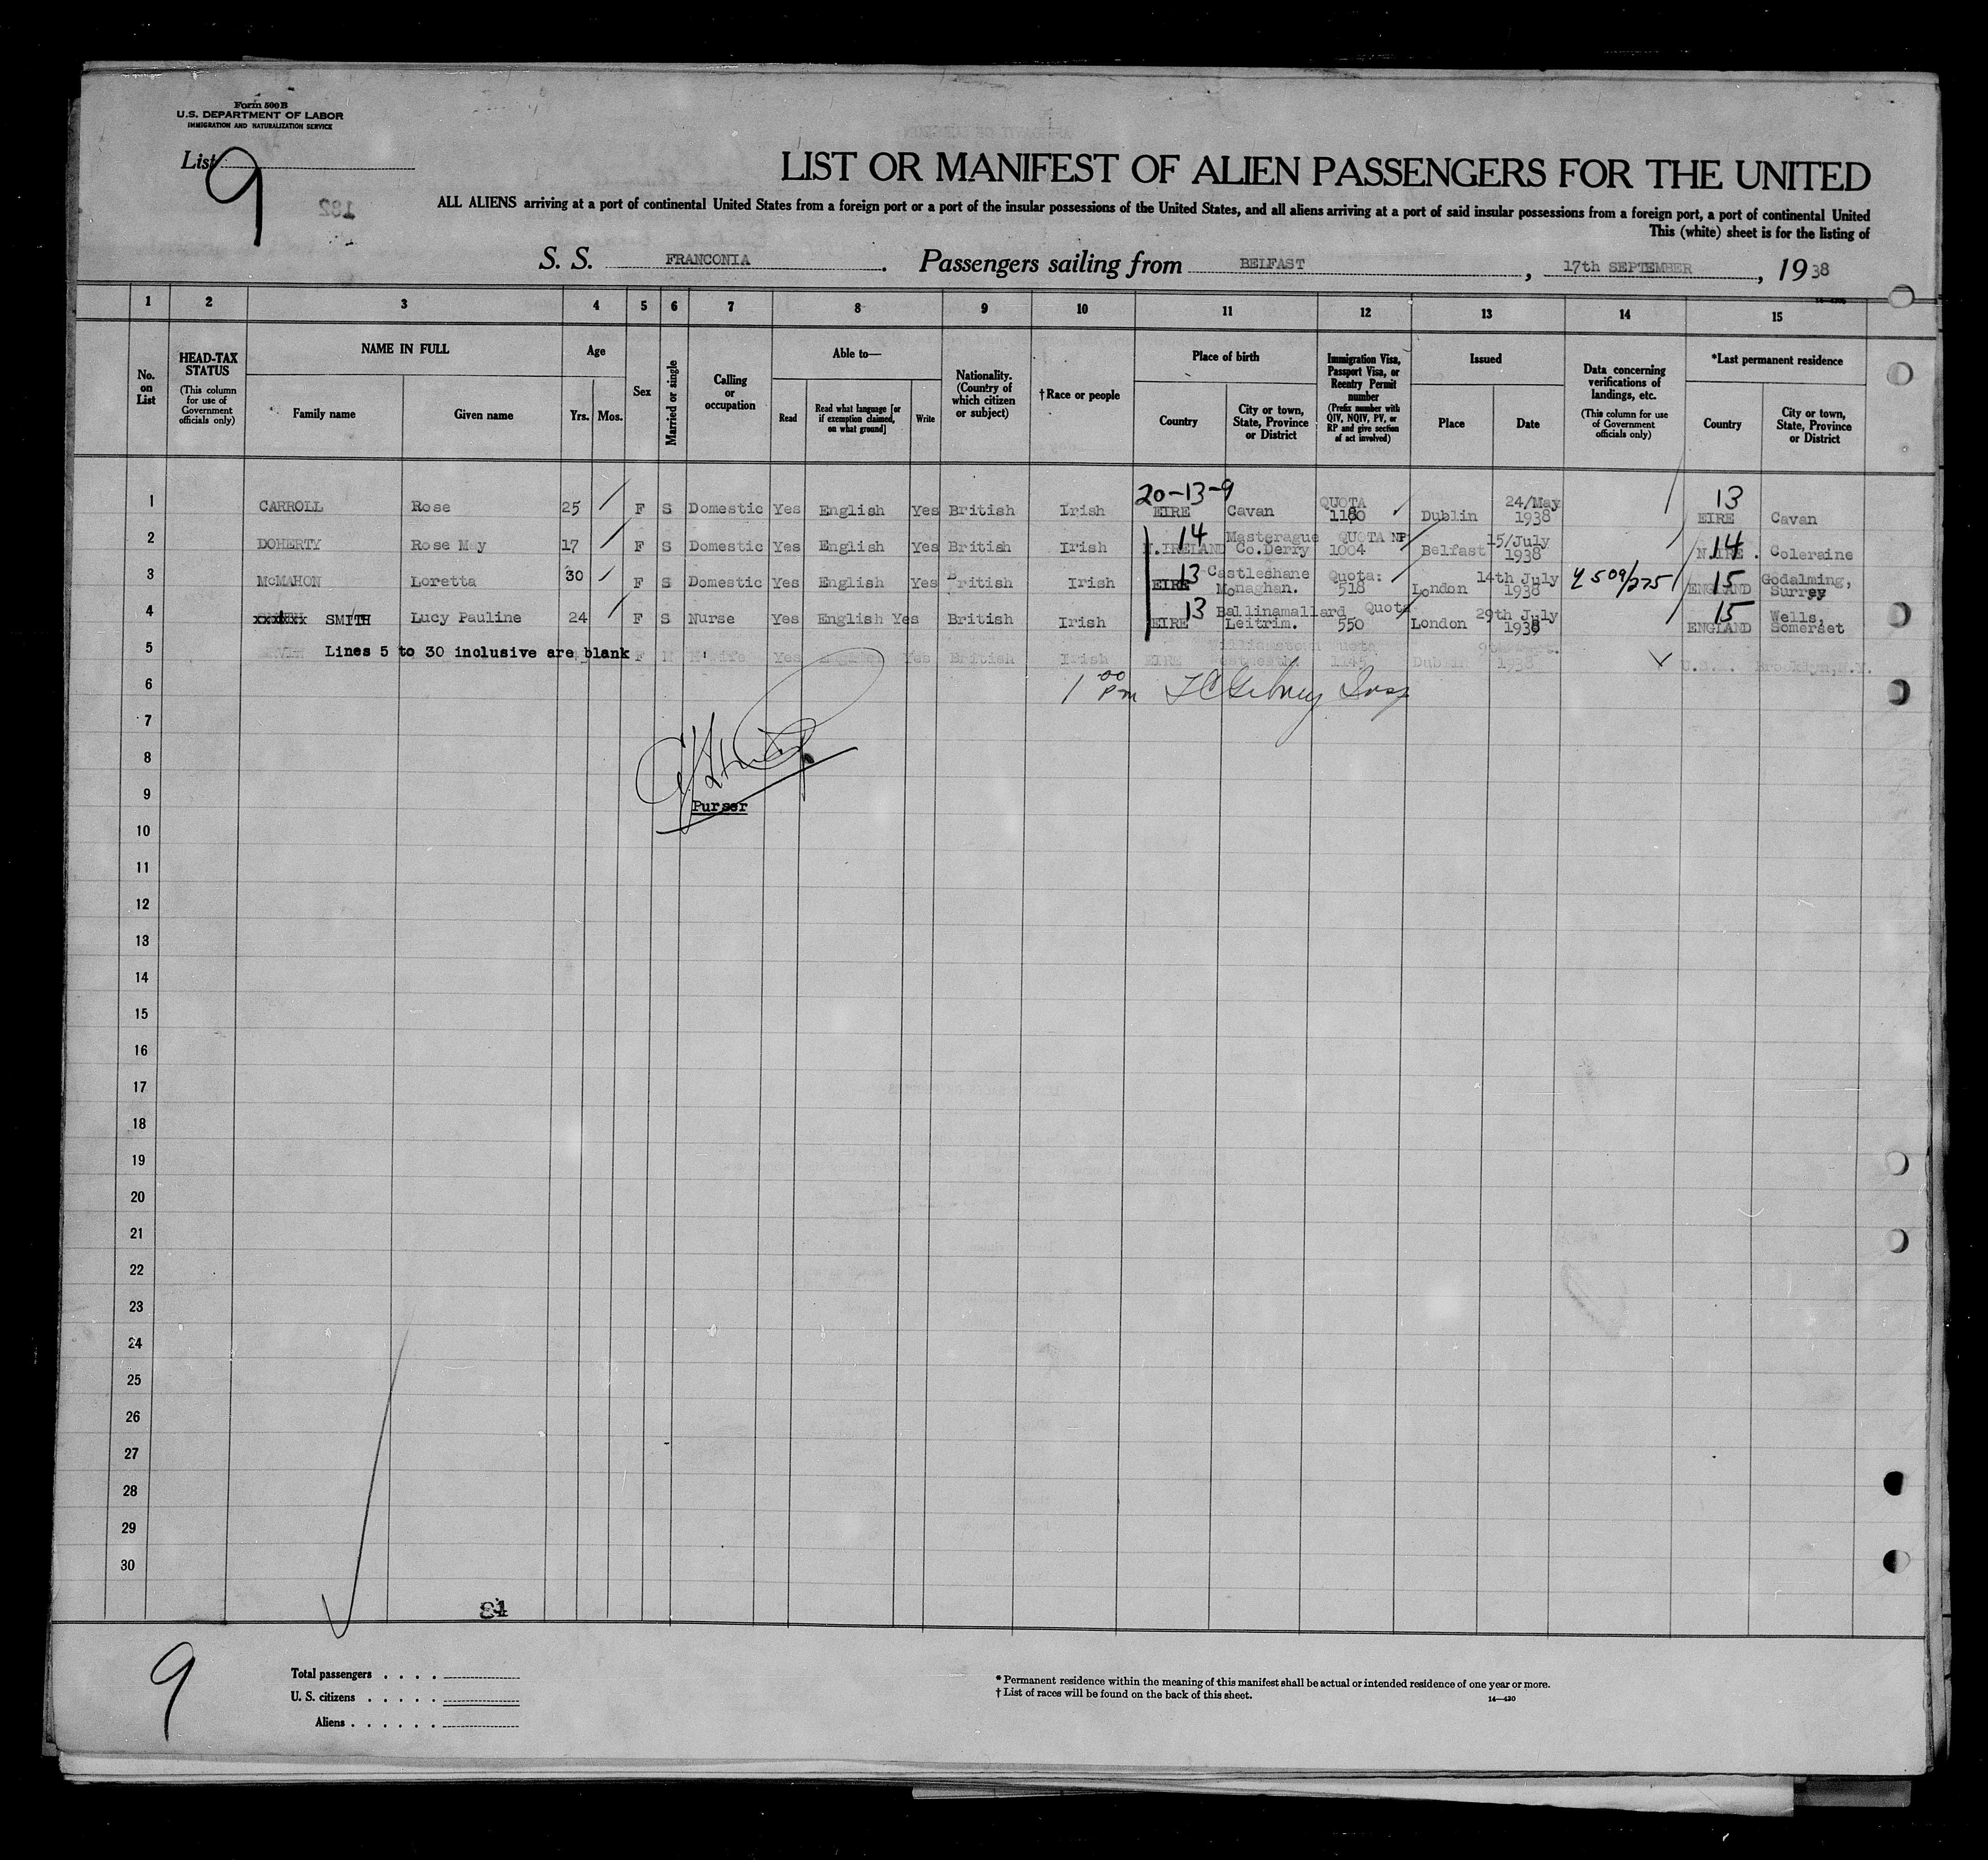 Form 500 B
U.S. DEPARTMENT OF LABOR
IMMIGRATION AND NATURALIZATION SERVICE
List 9
182
LIST OR MANIFEST OF ALIEN PASSENGERS FOR THE UNITED
ALL ALIENS arriving at a port of continental United States from a foreign port or a port of the insular possessions of the United States, and all aliens arriving at a port of said insular possessions from a foreign port, a port of continental United
This (white) sheet is for the listing of
S. S. FRANCONIA. Passengers sailing from BELFAST, 17th SEPTEMBER, 1938
1 2 3 4 5 6 7 8 9 10 11 12 13 14 15
No. on List
HEAD-TAX STATUS (This column for use of Government officials only)
NAME IN FULL
Family name Given name
Age
Yrs. Mos.
Sex
Married or single
Calling or occupation
Able to—
Read
Read what language [or if exemption claimed, on what ground]
Write
Nationality. (Country of which citizen or subject)
†Race or people
Place of birth
Country
City or town, State, Province or District
Immigration Visa, Passport Visa, or Reentry Permit number (Prefix number with QIV, NQIV, PV, or RP and give section of act involved)
Issued
Place Date
Data concerning verifications of landings, etc. (This column for use of Government officials only)
*Last permanent residence
Country
City or town, State, Province or District
20-13-9 13
1 CARROLL Rose 25 F S Domestic Yes English Yes British Irish EIRE Cavan QUOTA 1180 Dublin 24/May 1938 EIRE Cavan
2 DOHERTY Rose May 17 F S Domestic Yes English Yes British Irish N.IRELAND 14 Masterague Co.Derry QUOTA NP 1004 Belfast 15/July 1938 N.IRE. 14 Coleraine
3 McMAHON Loretta 30 F S Domestic Yes English Yes British Irish EIRE 13 Castleshane Monaghan. Quota: 518 London 14th July 1938 4 509/275 ENGLAND 15 Godalming, Surrey
4 SMITH Lucy Pauline 24 F S Nurse Yes English Yes British Irish EIRE 13 Ballinamallard Leitrim. Quota 550 London 29th July 1938 ENGLAND 15 Wells, Somerset
5 Lines 5 to 30 inclusive are blank F Yes English Yes British Irish EIRE Quota 1145 Dublin 1938 U.S.A. Brooklyn, N.Y.
6 1 00 pm
7
8
9 Purser
10
11
12
13
14
15
16
17
18
19
20
21
22
23
24
25
26
27
28
29
30
9
Total passengers . . . .
U. S. citizens . . . . .
Aliens . . . . . .
* Permanent residence within the meaning of this manifest shall be actual or intended residence of one year or more.
† List of races will be found on the back of this sheet.
14—420